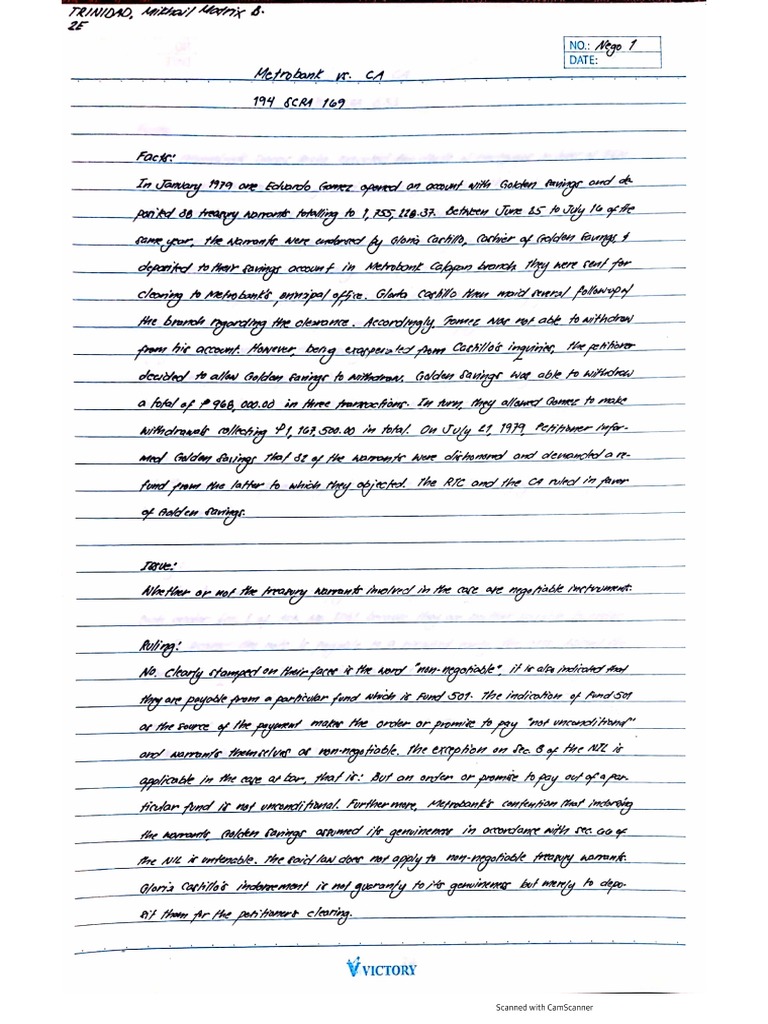 TRINIDAD, Mikhail Madrix B.
2E
NO.: Nego 1
DATE:
Metrobank vs. CA
194 SCRA 169
Facts:
In January 1979 one Eduardo Gomez opened an account with Golden Savings and de-
posited 38 treasury warrants totalling to 1,755,228.37. Between June 25 to July 16 of the
same year, the warrants were endorsed by Gloria Castillo, Cashier of Golden Savings &
deposited to their savings account in Metrobank Calapan branch. They were sent for
clearing to Metrobank's principal office. Gloria Castillo then maid several followup of
the branch regarding the clearance. Accordingly, Gomez was not able to withdraw
from his account. However, being exasperated from Castillo's inquiries, the petitioner
decided to allow Golden Savings to withdraw. Golden Savings was able to withdraw
a total of ₱ 968,000.00 in three transactions. In turn, they allowed Gomez to make
withdrawals collecting ₱1,167,500.00 in total. On July 21, 1979, Petitioner infor-
med Golden Savings that 32 of the warrants were dishonored and demanded a re-
fund from the latter to which they objected. The RTC and the CA ruled in favor
of Golden Savings.
Issue:
Whether or not the treasury warrants involved in the case are negotiable instruments.
Ruling:
No. Clearly stamped on their faces is the word "non-negotiable", it is also indicated that
they are payable from a particular fund which is Fund 501. The indication of Fund 501
as the source of the payment makes the order or promise to pay "not unconditional"
and warrants themselves as non-negotiable. The exception on Sec. 3 of the NIL is
applicable in the case at bar, that is: But an order or promise to pay out of a par-
ticular fund is not unconditional. Furthermore, Metrobank's contention that indorsing
the warrants, Golden Savings assumed its genuineness in accordance with sec. 66 of
the NIL is untenable. The said law does not apply to non-negotiable treasury warrants.
Gloria Castillo's indorsement is not guaranty to its genuineness but merely to depo-
sit them for the petitioners clearing.
VICTORY
Scanned with CamScanner